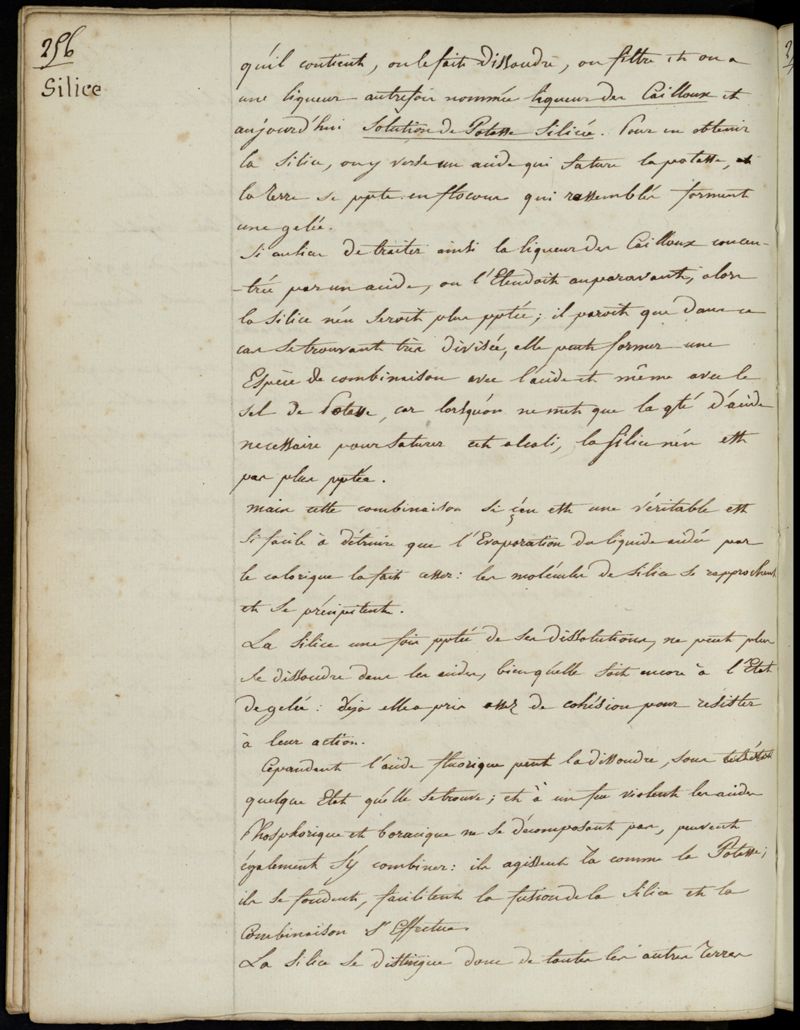 256
Silice
qu'il contient, on le fait dissoudre, on filtre et on a
une liqueur autrefois nommée liqueur des Cailloux et
aujourd'hui Solution de Potasse Silicée. Pour en obtenir
la Silice, on y verse un acide qui Sature la potasse, et
la terre se ppte. en flocons qui rassemblés forment
une gelée.
Si au lieu de traiter ainsi la liqueur des Cailloux concen-
-trée par un acide, on l'Etendoit auparavant, alors
la Silice n'en Seroit plus pptée; il paroit que dans ce
cas Se trouvant très divisée, elle peut former une
Espèce de combinaison avec l'acide et même avec le
Sel de Potasse, car lorsqu'on ne met que la qté d'acide
necessaire pour Saturer cet alcali, la Silice n'en est
pas plus pptée.
mais cette combinaison Si ç'en est une véritable est
Si facile à détruire que l'Evaporation du liquide aidée par
le calorique la fait cesser: les molécules de Silice se rapprochent
et Se précipitent.
La Silice une fois pptée de Ses dissolutions, ne peut plus
Se dissoudre dans les acides, bien qu'elle Soit encore à l'Etat
de gelée: déja elle a pris assez de cohésion pour résister
à leur action.
Cependant l'acide fluorique peut la dissoudre, Sous
quelque Etat qu'elle Se trouve; et à un feu violent les acides
Phosphorique et boracique ne Se décomposant pas, peuvent
également S'y combiner: ils agissent là comme la Potasse;
ils Se fondent, facilitent la fusion de la Silice et la
Combinaison S'Effectue.
La Silice Se distingue donc de toutes les autres terres